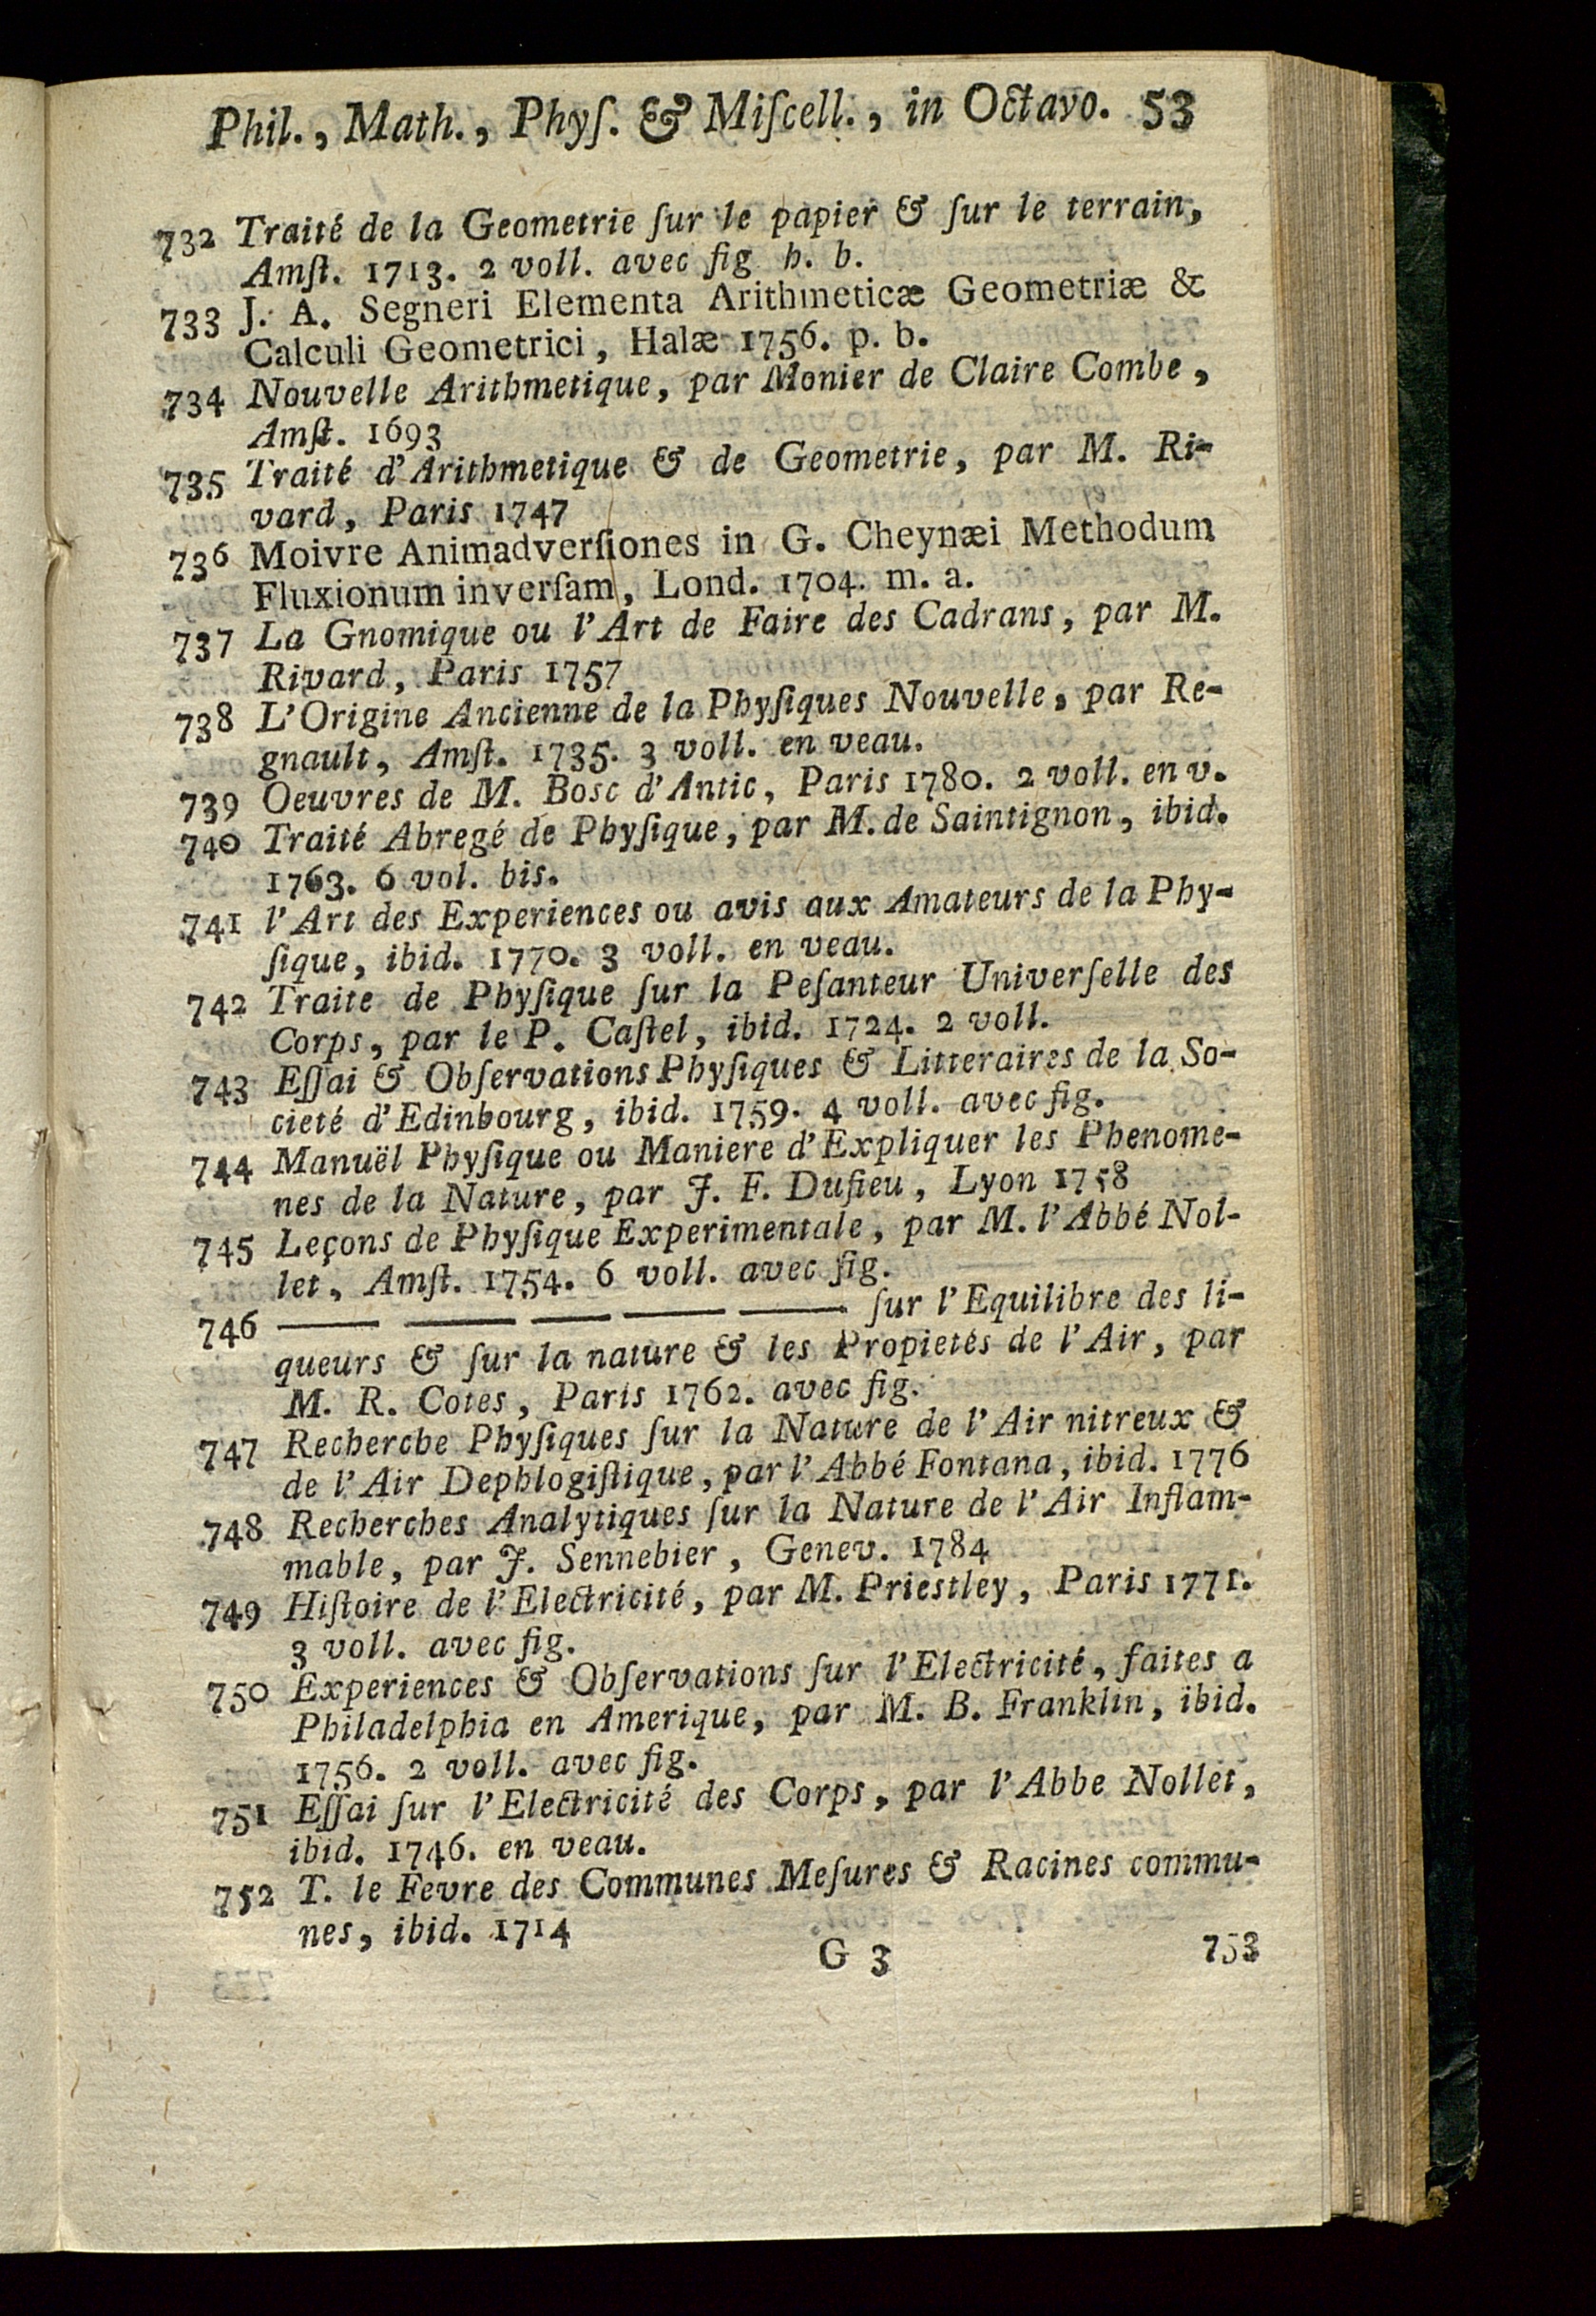 Phil., Math., Phyſ. & Miſcell., in Octavo. 53
732 Traité de la Geometrie ſur le papier & ſur le terrain,
Amſt. 1713. 2 voll. avec fig h. b.
733 J. A. Segneri Elementa Arithmeticæ Geometriæ &
Calculi Geometrici, Halæ 1756. p. b.
734 Nouvelle Arithmetique, par Monier de Claire Combe,
Amſt. 1693
735 Traité d'Arithmetique & de Geometrie, par M. Ri-
vard, Paris 1747
736 Moivre Animadverſiones in G. Cheynæi Methodum
Fluxionum inverſam, Lond. 1704. m. a.
737 La Gnomique ou l'Art de Faire des Cadrans, par M.
Rivard, Paris 1757
738 L'Origine Ancienne de la Phyſiques Nouvelle, par Re-
gnault, Amſt. 1735. 3 voll. en veau.
739 Oeuvres de M. Bosc d'Antic, Paris 1780. 2 voll. en v.
740 Traité Abregé de Phyſique, par M. de Saintignon, ibid.
1763. 6 vol. bis.
741 l'Art des Experiences ou avis aux Amateurs de la Phy-
ſique, ibid. 1770. 3 voll. en veau.
742 Traite de Phyſique ſur la Peſanteur Univerſelle des
Corps, par le P. Caſtel, ibid. 1724. 2 voll.
743 Eſſai & Obſervations Phyſiques & Litteraires de la So-
cieté d'Edinbourg, ibid. 1759. 4 voll. avec fig.
744 Manuël Phyſique ou Maniere d'Expliquer les Phenome-
nes de la Nature, par J. F. Duſieu, Lyon 1758
745 Leçons de Phyſique Experimentale, par M. l'Abbé Nol-
let, Amſt. 1754. 6 voll. avec fig.
746 — — — — — ſur l'Equilibre des li-
queurs & ſur la nature & les Propietés de l'Air, par
M. R. Cotes, Paris 1762. avec fig.
747 Recherche Phyſiques ſur la Nature de l'Air nitreux &
de l'Air Dephlogiſtique, par l'Abbé Fontana, ibid. 1776
748 Recherches Analytiques ſur la Nature de l'Air Inflam-
mable, par J. Sennebier, Genev. 1784
749 Hiſtoire de l'Electricité, par M. Priestley, Paris 1771.
3 voll. avec fig.
750 Experiences & Obſervations ſur l'Electricité, faites a
Philadelphia en Amerique, par M. B. Franklin, ibid.
1756. 2 voll. avec fig.
751 Eſſai ſur l'Electricité des Corps, par l'Abbe Nollet,
ibid. 1746. en veau.
752 T. le Fevre des Communes Meſures & Racines commu-
nes, ibid. 1714
G 3 753